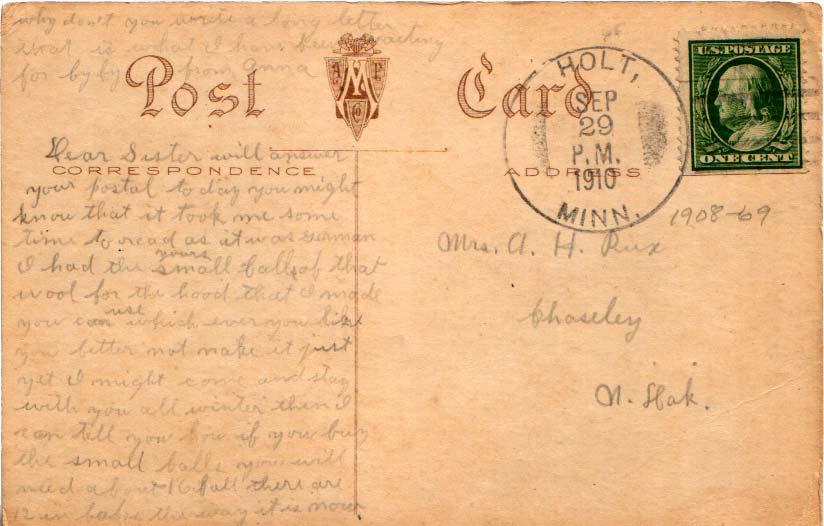 why don't you write a long letter
that is what I have been waiting
for by by from Anna
Post Card
A M F Co
HOLT,
SEP
29
P.M.
1910
MINN.
U.S. POSTAGE
ONE CENT
CORRESPONDENCE
ADDRESS
1908-09
Dear Sister will answer
your postal to day you might
know that it took me some
time to read as it was German
yours
I had the small balls of that
wool for the hood that I made
use
you can which ever you like
you better not make it just
yet I might come and stay
with you all winter then I
can tell you how if you buy
the small balls you will
need about 16 ball there are
12 in the way it is now
Mrs. A. H. Rux
Chaseley
N. Dak.